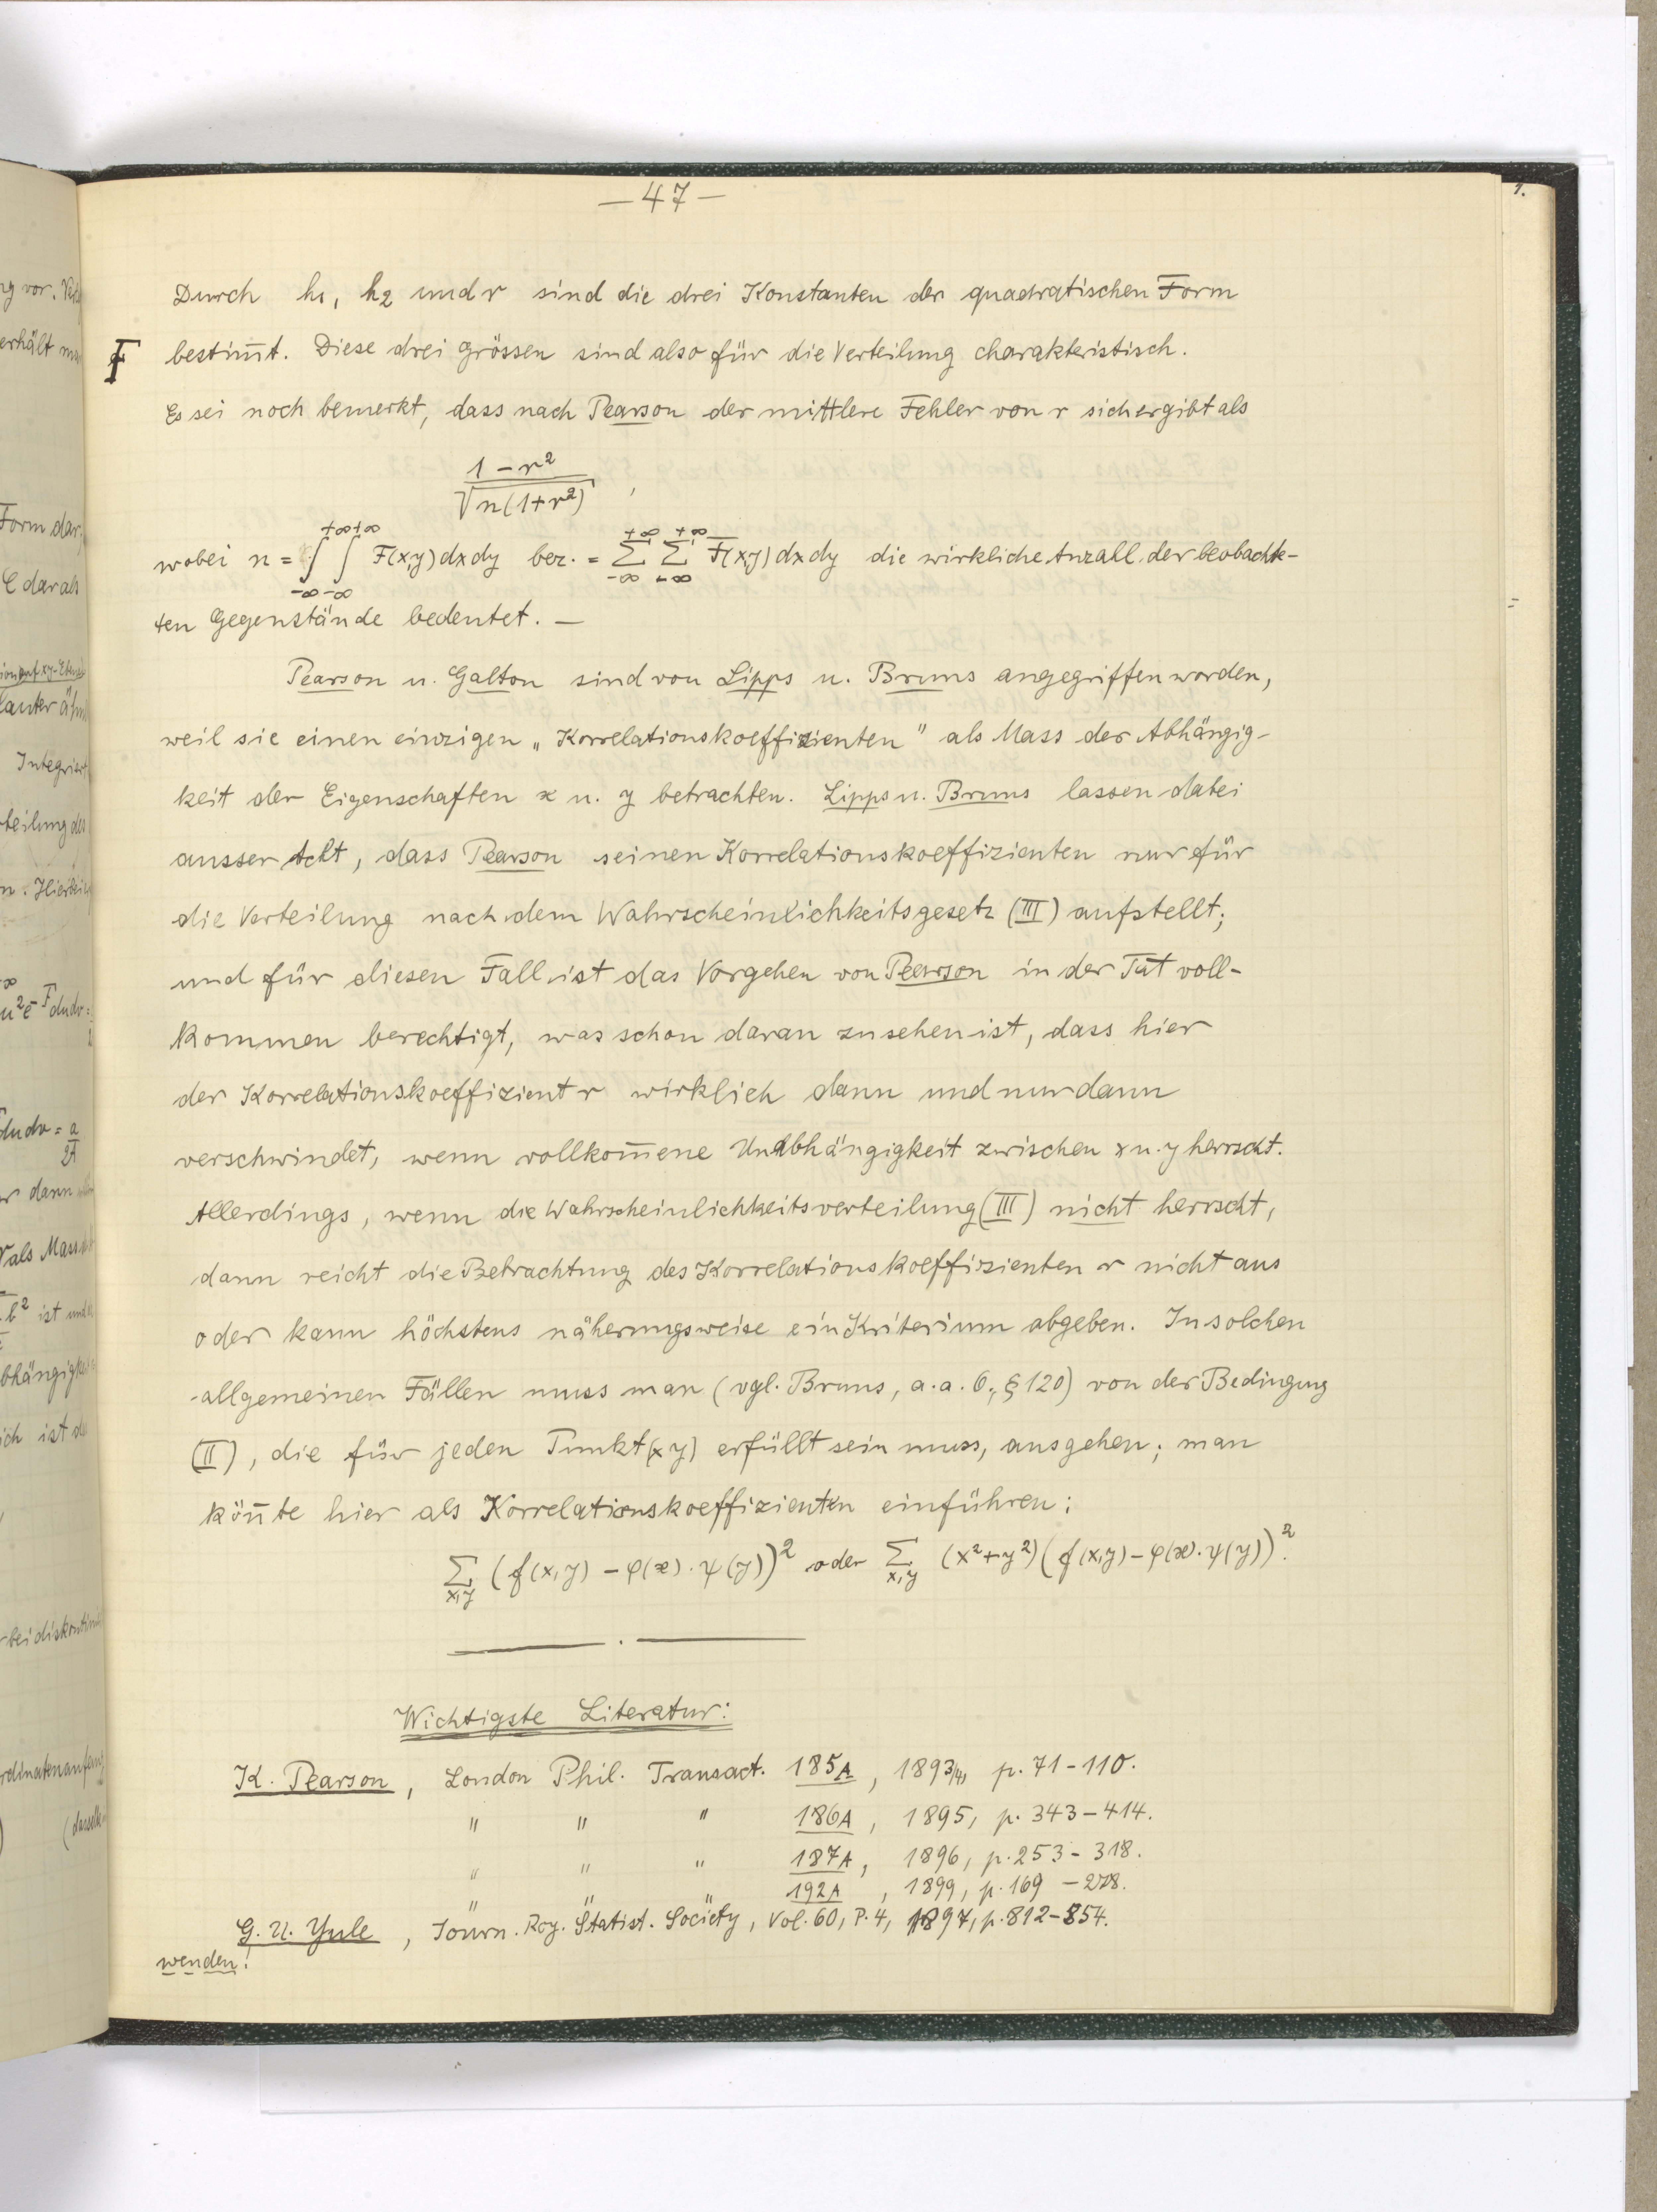 — 47 —
Durch h₁, h₂ und r sind die drei Konstanten der quadratischen Form
F bestim̅t. Diese drei Grössen sind also für die Verteilung charakteristisch.
Es sei noch bemerkt, dass nach Pearson der mittlere Fehler von r sich ergibt als
(1 − r²) / √(n(1+r²)) ,
wobei n = ∫_{-∞}^{+∞} ∫_{-∞}^{+∞} F(x,y) dx dy bez. = Σ_{-∞}^{+∞} Σ_{-∞}^{+∞} F(x,y) dx dy die wirkliche Anzall der beobachte-
ten Gegenstände bedeutet. —
Pearson u. Galton sind von Lipps u. Bruns angegriffen worden,
weil sie einen einzigen „Korrelationskoeffizienten" als Mass der Abhängig-
keit der Eigenschaften x u. y betrachten. Lipps u. Bruns lassen dabei
ausser Acht, dass Pearson seinen Korrelationskoeffizienten nur für
die Verteilung nach dem Wahrscheinlichkeitsgesetz (III) aufstellt;
und für diesen Fall ist das Vorgehen von Pearson in der Tat voll-
kommen berechtigt, was schon daran zu sehen ist, dass hier
der Korrelationskoeffizient r wirklich dann und nur dann
verschwindet, wenn vollkom̅ene Unabhängigkeit zwischen x u. y herrscht.
Allerdings, wenn die Wahrscheinlichkeitsverteilung (III) nicht herrscht,
dann reicht die Betrachtung des Korrelationskoeffizienten r nicht aus
oder kann höchstens näherungsweise ein Kriterium abgeben. In solchen
allgemeinen Fällen muss man (vgl. Bruns, a. a. O., § 120) von der Bedingung
(II), die für jeden Punkt (x y) erfüllt sein muss, ausgehen; man
kön̅te hier als Korrelationskoeffizienten einführen:
Σ_{x,y} (f(x,y) − φ(x)·ψ(y))² oder Σ_{x,y} (x²+y²)(f(x,y) − φ(x)·ψ(y))².
Wichtigste Literatur:
K. Pearson, London Phil. Transact. 185A, 1893/4, p. 71-110.
" " " 186A, 1895, p. 343-414.
" " " 187A, 1896, p. 253-318.
" " " 192A, 1899, p. 169-278.
G. U. Yule, Journ. Roy. Statist. Society, Vol. 60, P. 4, 1897, p. 812-854.
wenden!